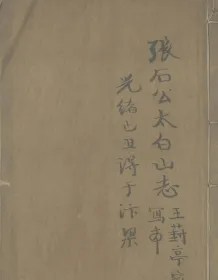 張石公太白山志
王葑亭
寫本
光緒己丑得于汴梁